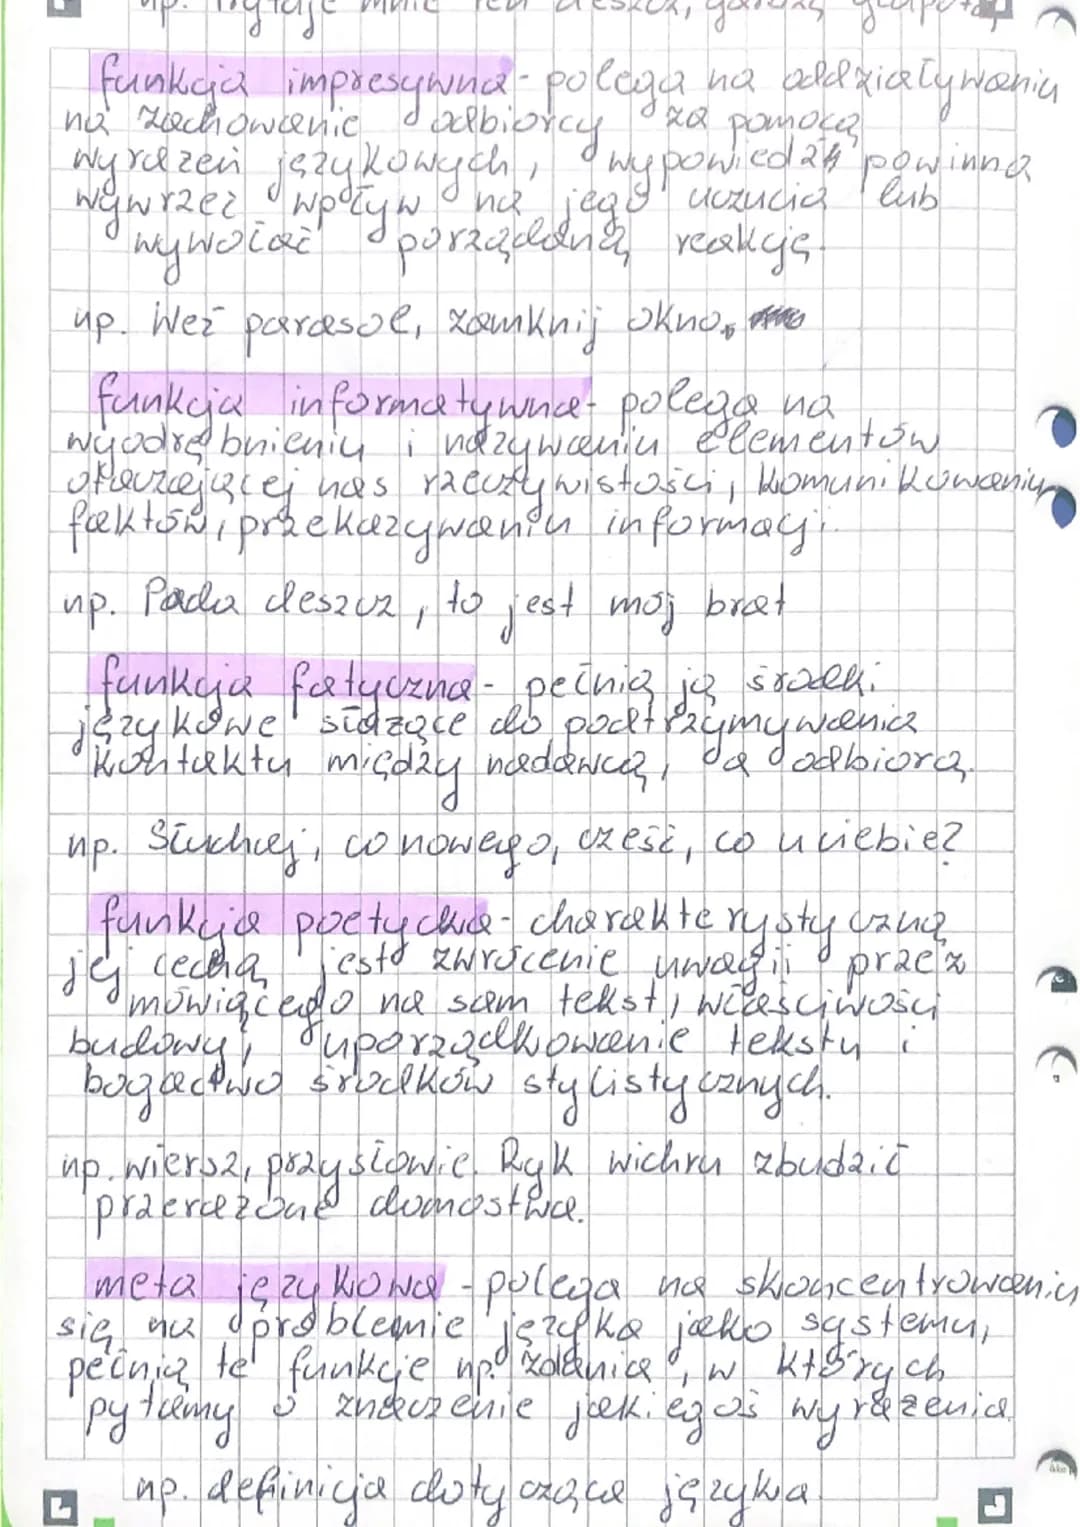 np. Irytuje mnie ten deszcz,
funkcja impresywna - polega na oddziaływaniu
na zachowanie odbiorcy za pomocą
wyrażeń językowych, wypowiedź powinna
wywrzeć wpływ na jego uczucia lub
wywołać porządaną reakcję.
np. Weź parasol, zamknij okno.
funkcja informatywna - polega na
wyodrębnieniu i nazywaniu elementów
otaczającej nas rzeczywistości, komunikowaniu
faktów, przekazywaniu informacji.
np. Pada deszcz, to jest mój brat
funkcja fatyczna - pełnią ją środki
językowe służące do podtrzymywania
kontaktu między nadawcą, a odbiorcą.
np. Słuchaj, co nowego, cześć, co u ciebie?
funkcja poetycka - charakterystyczną
jej cechą jest zwrócenie uwagii przez
mówiącego na sam tekst, właściwości
budowy, uporządkowanie tekstu i
bogactwo środków stylistycznych.
np. wiersz, przysłowie. Ryk wichru zbudził
przerażone domostwa.
meta językowa - polega na skoncentrowaniu
się na problemie języka jako systemu,
pełnią te funkcje np. zdania, w których
pytamy o znaczenie jakiegoś wyrażenia
np. definicja dotycząca języka.